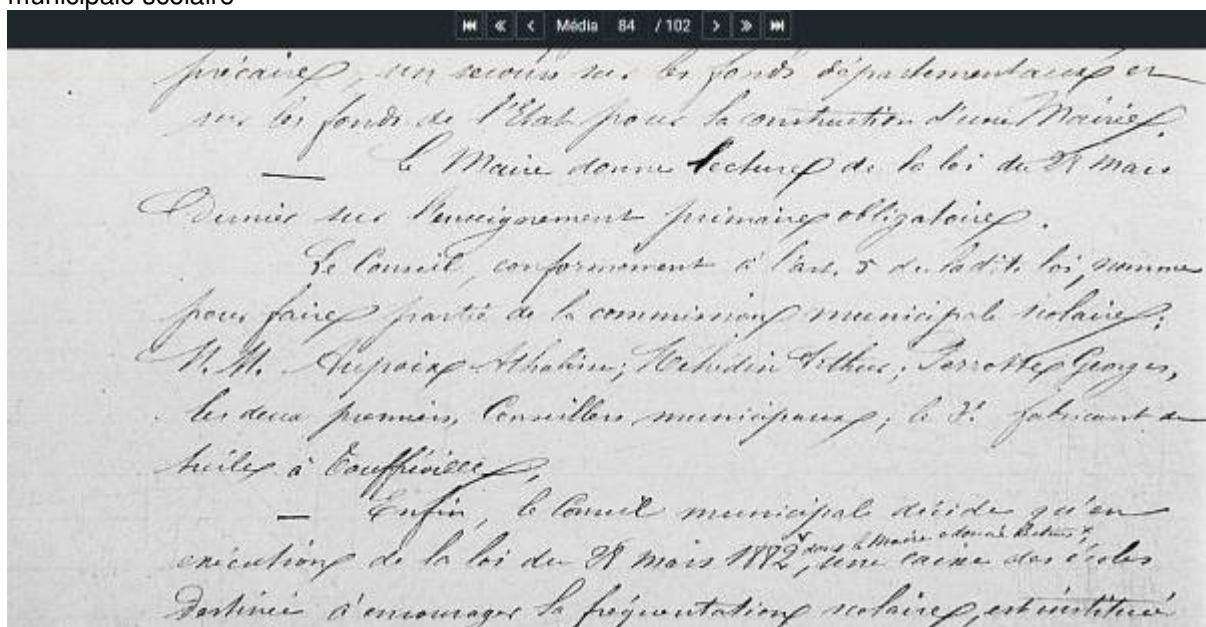 municipale scolaire
Média 84 / 102
précaires, un secours sur les fonds départementaux et
sur les fonds de l'Etat pour la construction d'une Mairie.
— Le Maire donne lecture de la loi du 28 mars
Dernier sur l'enseignement primaire obligatoire.
Le Conseil, conformément à l'art. 5 de ladite loi, nomme
pour faire partie de la commission municipale scolaire;
M.M. Georges,
les deux premiers, Conseillers municipaux, le 3e fabricant de
tuiles à Touffréville,
— Enfin, le Conseil municipal décide qu'en
dont le Maire a donné lecture,
exécution de la loi du 28 mars 1882, une caisse des écoles
Destinée à encourager la fréquentation scolaire, est instituée